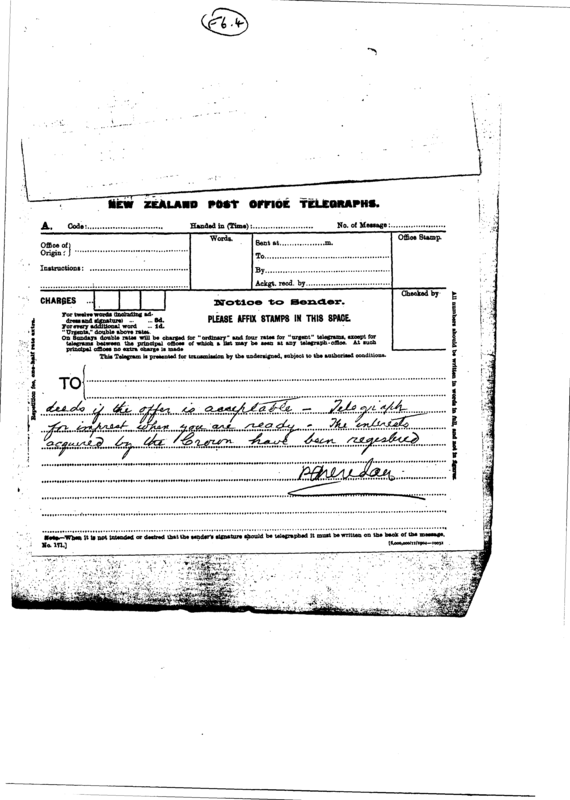 F6.4
NEW ZEALAND POST OFFICE TELEGRAPHS.
A. Code: Handed in (Time): No. of Message:
Office of Origin:
Instructions:
Words.
Sent at m.
To
By
Ackgt. recd. by
Office Stamp.
Checked by
CHARGES
For twelve words (including address and signature) 6d.
For every additional word 1d.
"Urgents," double above rates.
Notice to Sender.
PLEASE AFFIX STAMPS IN THIS SPACE.
On Sundays double rates will be charged for "ordinary" and four rates for "urgent" telegrams, except for
telegrams between the principal offices of which a list may be seen at any telegraph-office. At such
principal offices no extra charge is made
This Telegram is presented for transmission by the undersigned, subject to the authorised conditions.
Repetition fee, one-half rate extra.
All numbers should be written in words in full, and not in figures.
TO
deeds if the offer is acceptable – Telegraph
for imprest when you are ready. The interests
acquired by the Crown have been registered
Note.—When it is not intended or desired that the sender's signature should be telegraphed it must be written on the back of the message.
No. 171.]